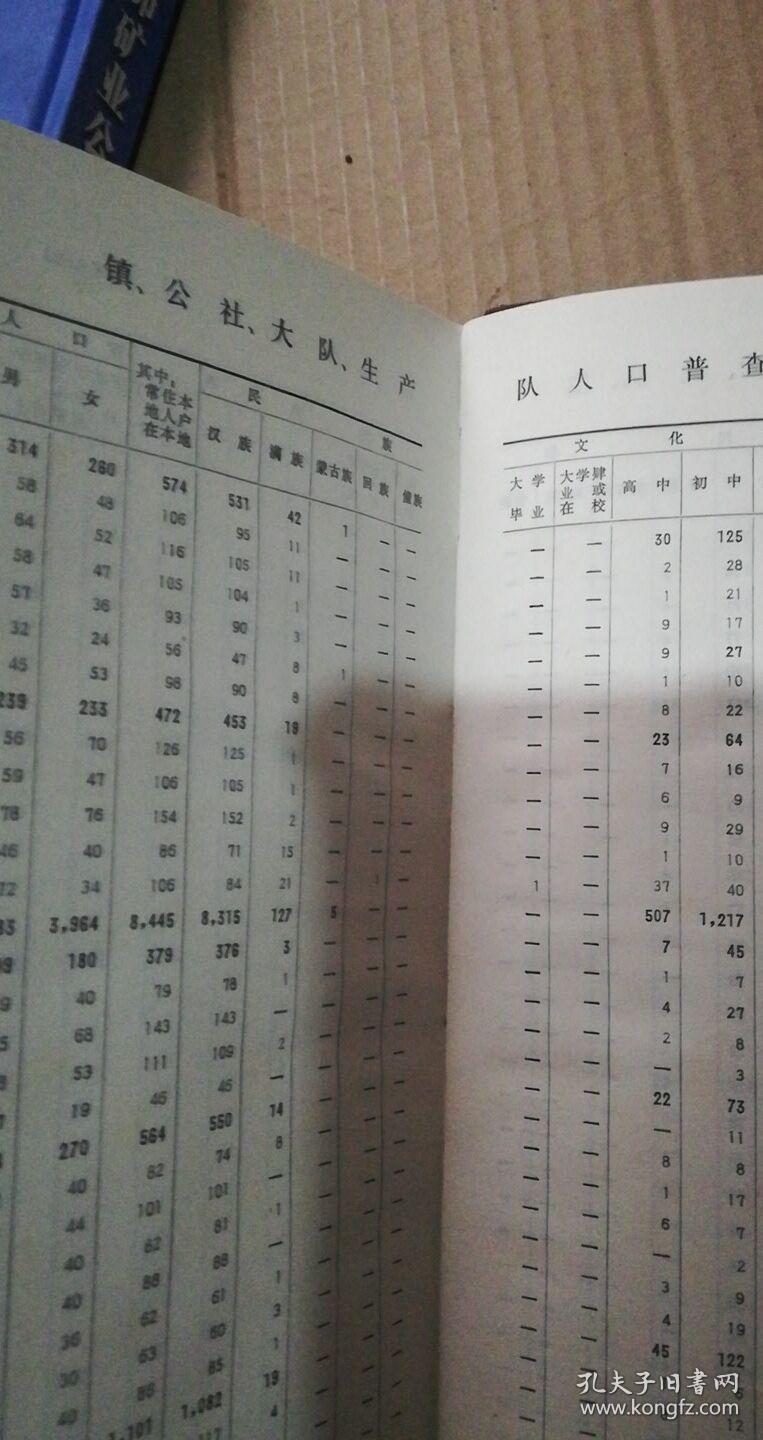 矿业公
镇、公社、大队、生产
人口
男 女 其中：常住本地人户在本地 民族
汉族 满族 蒙古族 回族
314 260 574 531 42 1 — —
58 48 106 95 11 — — —
64 52 116 105 11 — — —
58 47 105 104 1 — — —
57 36 93 90 3 — — —
32 24 56 47 8 1 — —
45 53 98 90 8 — — —
239 233 472 453 19 — — —
56 70 126 125 1 — — —
59 47 106 105 1 — — —
78 76 154 152 2 — — —
46 40 86 71 15 — — —
72 34 106 84 21 — 1 —
3,964 8,445 8,315 127 5 — —
180 379 376 3 — — —
40 79 78 1 — — —
68 143 143 — — — —
53 111 109 2 — — —
19 46 46 — — — —
270 564 550 14 — — —
40 82 74 8 — — —
44 101 101 — — — —
40 82 81 1 — — —
40 88 88 — — — —
36 62 61 1 — — —
30 63 60 3 — — —
40 86 85 1 — — —
1,101 1,082 19
117 4
队人口普查
文化
大学毕业 大学肄业或在校 高中 初中
— — 30 125
— — 2 28
— — 1 21
— — 9 17
— — 9 27
— — 1 10
— — 8 22
— — 23 64
— — 7 16
— — 6 9
— — 9 29
— — 1 10
1 — 37 40
— — 507 1,217
— — 7 45
— — 1 7
— — 4 27
— — 2 8
— — — 3
— — 22 73
— — — 11
— — 8 8
— — 1 17
— — 6 7
— — — 2
— — 3 9
— — 4 19
— — 45 122
12
孔夫子旧书网
www.kongfz.com